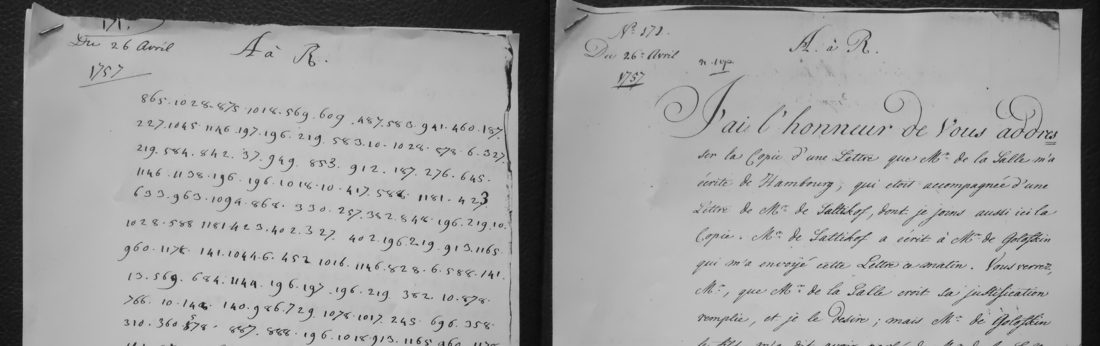 171.
Du 26 Avril
A à R.
1757
865.1028.875.1018.569.609.487.583.941.460.187.
227.1045.1146.197.196.219.583.10.1028.878.6.327.
219.584.842.37.949.853.912.187.276.645.
1146.1138.196.196.1018.10.417.588.1181.423
633.963.1094.868.330.257.382.848.196.219.10.
1028.588 1181.423.402.327 402.196.219.913.1165
960.1176.141.1044.6.452 1016.1146.828.6.588.141.
13.569.684.1144.196.197.196.219 382 10.878.
766.10.142 140.986.729 1078.1017.245 696.358
310.360 578 887.888.196.1018.913.1165.960.1178
N.° 171.
Du 26.e Avril
1757
A. à R.
J'ai l'honneur de Vous addres
ser la Copie d'une Lettre que Mr. de la Salle m'a
écrite de Hambourg, qui etoit accompagnée d'une
Lettre de Mr. de Sattikof, dont je joins aussi ici la
Copie. Mr. de Sattikof a écrit à Mr. de Golofskin
qui m'a envoyé cette Lettre ce matin. Vous verrez,
Mr., que Mr. de la Salle croit sa justification
remplie, et je le desire; mais Mr. de Golofskin